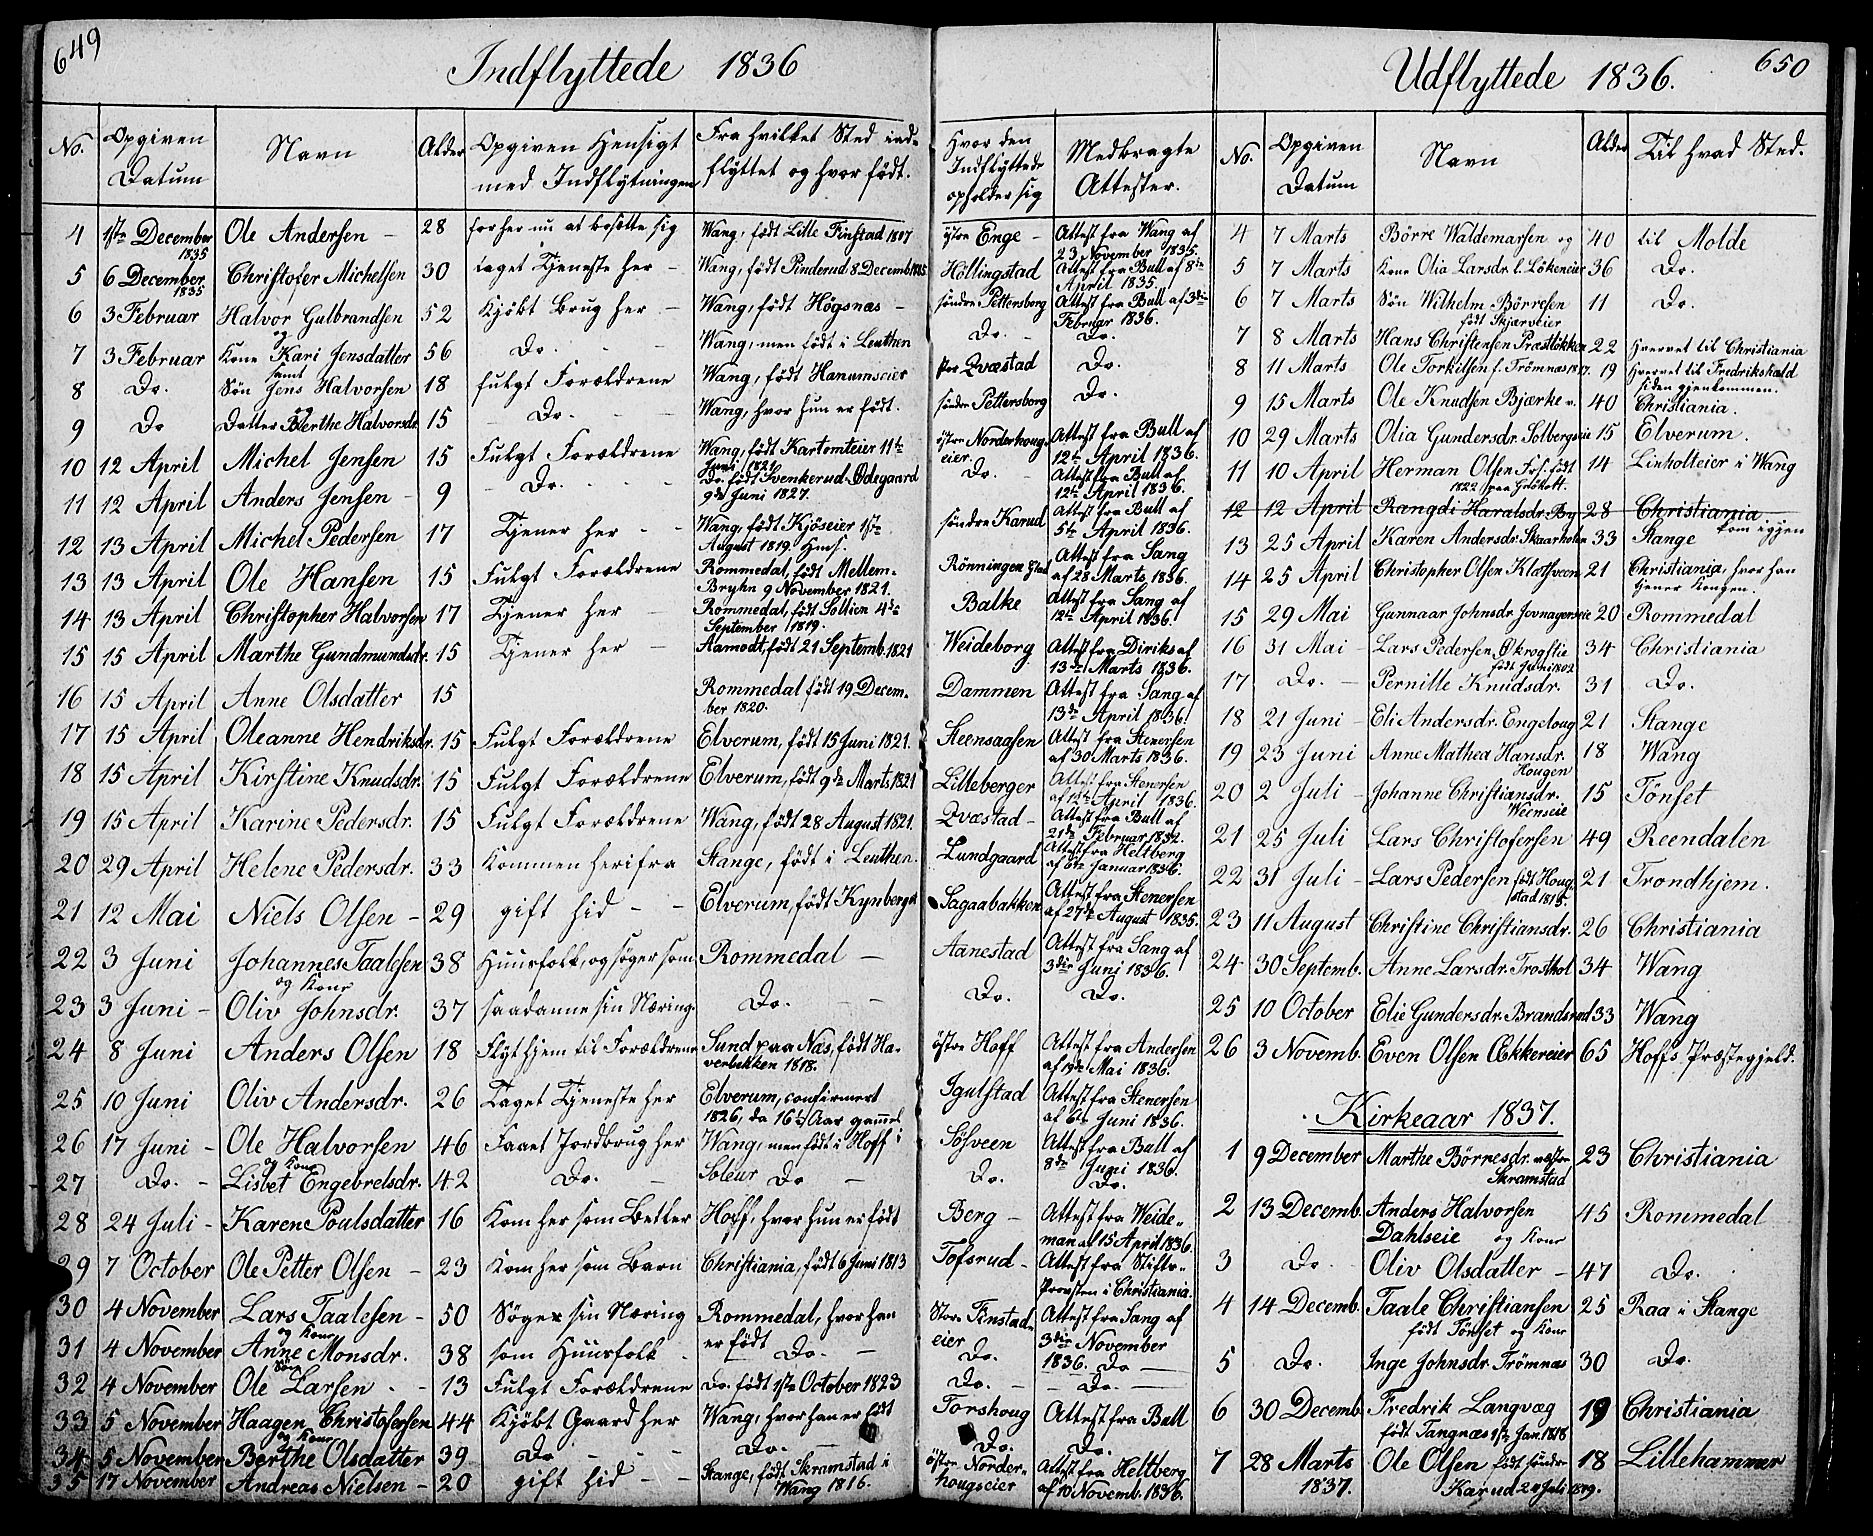 649
Indflyttede 1836
No. | Opgiven Datum | Navn | Alder | Opgiven Hensigt med Indflytningen | Fra hvilket Sted indflyttet og hvor født. | Hvor den Indflyttede opholder sig | Medbragte Attester.
4 | 1ste December 1835 | Ole Andersen – | 28 | for her nu at bosætte sig | Wang, født Lille Finstad 1807 | østre Enge – | Attest fra Wang af 23 November 1835.
5 | 6 December 1835 | Christofer Michelsen | 30 | taget Tjeneste her – | Wang, født Pinderud 8 Decemb. | Hollingstad | Attest fra Bull af 8de April 1835.
6 | 3 Februar | Halvor Gulbrandsen og | 52 | Kjöbt Brug her – | Wang, født Högsnæs – | søndre Pettersborg | Attest fra Bull af 3die Februar 1836.
7 | 3 Februar | Kone Kari Jensdatter samt | 56 | Do. – | Wang, men født i Leuthen | Do. – | Do.
8 | Do. | Søn Jens Halvorsen og | 18 | fulgt Forældrene | Wang, født Hanumseier | Qvæstad | Do.
9 | Do | Datter Berthe Halvorsdr | 15 | Do. – – | Wang, hvor hun er født. | søndre Pettersborg | Do.
10 | 12 April | Michel Jensen | 15 | Fulgt Forældrene | Wang, født Kartomteier 11te Juni 1821 | östre Norderhougseier. | Attest fra Bull af 12te April 1836.
11 | 12 April | Anders Jensen – | 9 | – Do. – – – | Do. født Svenkerud Ödegaard 9de Juni 1827. | Do. – | Attest fra Bull af 12te April 1836.
12 | 13 April | Michel Pedersen | 17 | Tjener her – – | Wang, født Kjöseier 1ste August 1819 | søndre Karud | Attest fra Bull af 5te April 1836.
13 | 13 April | Ole Hansen | 15 | Fulgt Forældrene | Rommedal, født Mellem-Bryhn 9 November 1821. | Rönningen | Attest fra Sang af 28 Marts 1836.
14 | 13 April | Christopher Halvorsen | 17 | Tjener her – | Rommedal, født Sollien 4de September 1819. | Balke | Attest fra Sang af 12te April 1836.
15 | 15 April | Marthe Gundmundsdr. | 15 | Tjener her – | Aamodt, født 21 Septemb. 1821 | Weideborg | Attest fra Diriks af 13de Marts 1836.
16 | 15 April | Anne Olsdatter | 15 | Rommedal født 19 December 1820. | Dammen | Attest fra Sang af 13de April 1836.
17 | 15 April | Oleanne Hendriksdr. | 15 | Fulgt Forældrene | Elverum, født 15 Juni 1821. | Steensaasen | Attest fra Stenersen af 30 Marts 1836.
18 | 15 April | Kirstine Knudsdr. | 15 | Fulgt Forældrene | Elverum, født 9de Marts 1821 | Lilleberger | Attest fra Stenersen af 12te April 1836.
19 | 15 April | Karine Pedersdr. | 15 | Fulgt Forældrene | Wang, født 28 August 1821. | Qvæstad – | Attest fra Bull af 21de Februar 1832.
20 | 29 April | Helene Pedersdr. | 33 | Kommen herifra | Stange, født i Leuthen. | Lundgaard | Attest fra Heltberg af 6te Januar 1836.
21 | 12 Mai | Niels Olsen – | 29 | gift hid – – | Elverum, født Kynberget | Sagaabakken | Attest fra Stenersen af 27de August 1835.
22 | 3 Juni | Johannes Taalesen og Kone | 38 | Huusfolk, og søger som | Rommedal – | Aanestad | Attest fra Sang af 3die Juni 1836.
23 | 3 Juni – | Oliv Johnsdr. | 37 | saadanne sin Næring. | Do. – – | Do. | Do.
24 | 8 Juni | Anders Olsen | 18 | Flyt hjem til Forældrene | Sund paa Næs, født Haverbekken 1818. | östre Hoff | Attest fra Andersen af 19de Mai 1836.
25 | 10 Juni | Oliv Andersdr. | 26 | Taget Tjeneste her | Elverum, confirmert 1826, da 16½ Aar gammel | Igulstad | Attest fra Stenersen af 6te Juni 1836.
26 | 17 Juni – | Ole Halvorsen og Kone | 46 | Faaet Jordbrug her | Wang, men født i Hoff i | Sösveen | Attest fra Bull af 8de Juni 1836.
27 | Do. – | Lisbet Engebretsdr. | 42 | Do. – | Soleur Do – | Do. | Do.
28 | 24 Juli – | Karene Poulsdatter | 16 | Kom her som Betler | Hoff, hvor hun er født | Berg – | Attest fra Weideman af 15 April 1836.
29 | 7 October | Ole Petter Olsen – | 23 | Kom her som Barn | Christiania, født 6 Juni 1813 | Tofsrud – | Attest fra Stifts-Provsten i Christiania.
30 | 4 November | Lars Taalesen – og Kone | 50 | Söger sin Næring | Rommedal, hvor han er født | Store Finstadeier | Attest fra Sang af 3die November 1836.
31 | 4 November | Anne Monsdr. Søn | 38 | som Huusfolk – | Do. – | Do. | Do –
32 | 4 November | Ole Larsen – – | 13 | Fulgt Forældrene | Do. født 1ste October 1823 | Do. – | – Do. –
33 | 5 November | Haagen Christofersen og Kone | 44 | Kjöbt Gaard her | Wang, hvor han er født | Torshoug | Attest fra Bull
34 | 5 November | Berthe Olsdatter | 39 | Do – – – | Do. – | Do. | Do.
35 | 17 November | Andreas Nielsen – | 20 | gift hid – – | Stange, født Skramstad i Wang 1816. | östre Norderhougseier | Attest fra Heltberg af 10 Novemb. 1836.
650
Udflyttede 1836.
No. | Opgiven Datum | Navn | Alder | Til hvad Sted.
4 | 7 Marts | Börre Waldemarsen og | 40 | til Molde
5 | 7 Marts | Kone Olia Larsdr. Lökeneier | 36 | Do.
6 | 7 Marts | Søn Wilhelm Börresen født Skjærveier | 11 | Do.
7 | 8 Marts | Hans Christensen Præstlökken | 22 | hvervet til Christiania
8 | 11 Marts | Ole Torkilsen f. Trömnæs 1817. | 19 | hvervet til Fredrikshald siden gjenkommen.
9 | 15 Marts | Ole Knudsen Bjærke | 40 | Christiania.
10 | 29 Marts | Olia Gundersdr. Solbergseie | 15 | Elverum.
11 | 10 April | Herman Olsen født 1822 paa | 14 | Linholteier i Wang
12 | 12 April | Rangdi Haralsdr. By | 28 | Christiania kom igjen
13 | 25 April | Karen Andersdr. Skaarholen | 33 | Stange
14 | 25 April | Christopher Olsen Klætsveen | 21 | Christiania, hvor han tjener Kongen.
15 | 29 Mai | Gunnaar Johnsdr. Jovnagerseie | 20 | Rommedal
16 | 31 Mai – | Lars Pedersen Økrogstie født Juni 1802 | 34 | Christiania
17 | Do. – | Pernille Knudsdr. | 31 | Do.
18 | 21 Juni – | Eli Andersdr. Engeloug | 21 | Stange
19 | 23 Juni | Anne Mathea Hansdr. Hougen | 18 | Wang
20 | 2 Juli – | Johanne Christiansdr. Weenseie | 15 | Tönset
21 | 25 Juli | Lars Christofersen | 49 | Reendalen
22 | 31 Juli – | Lars Pedersen født Hougstad 1815. | 21 | Trondhjem.
23 | 11 August | Christine Christiansdr. | 26 | Christiania
24 | 30 Septemb. | Anne Larsdr. Trosthol | 34 | Wang
25 | 10 October | Elie Gundersdr. Brandsrud | 33 | Wang
26 | 3 Novemb. | Even Olsen Œkkereier | 65 | Hoffs Præstegjeld.
Kirkeaar 1837.
1 | 9 December | Marthe Börnesdr. Skramstad | 23 | Christiania
2 | 13 Decemb. | Anders Halvorsen Dahlseie og Kone | 45 | Rommedal
3 | Do. | Oliv Olsdatter – | 47 | Do.
4 | 14 Decemb. | Taale Christiansen født Tönset og Kone | 25 | Raa i Stange
5 | Do. | Inge Johnsdr. Trömnæs | 30 | Do.
6 | 30 Decemb. | Fredrik Langvæg født Tangnæs 1ste Jan. 1818 | 19 | Christiania
7 | 28 Marts 1837. | Ole Olsen født søndre Karud 24 Juli 1819. | 18 | Lillehammer